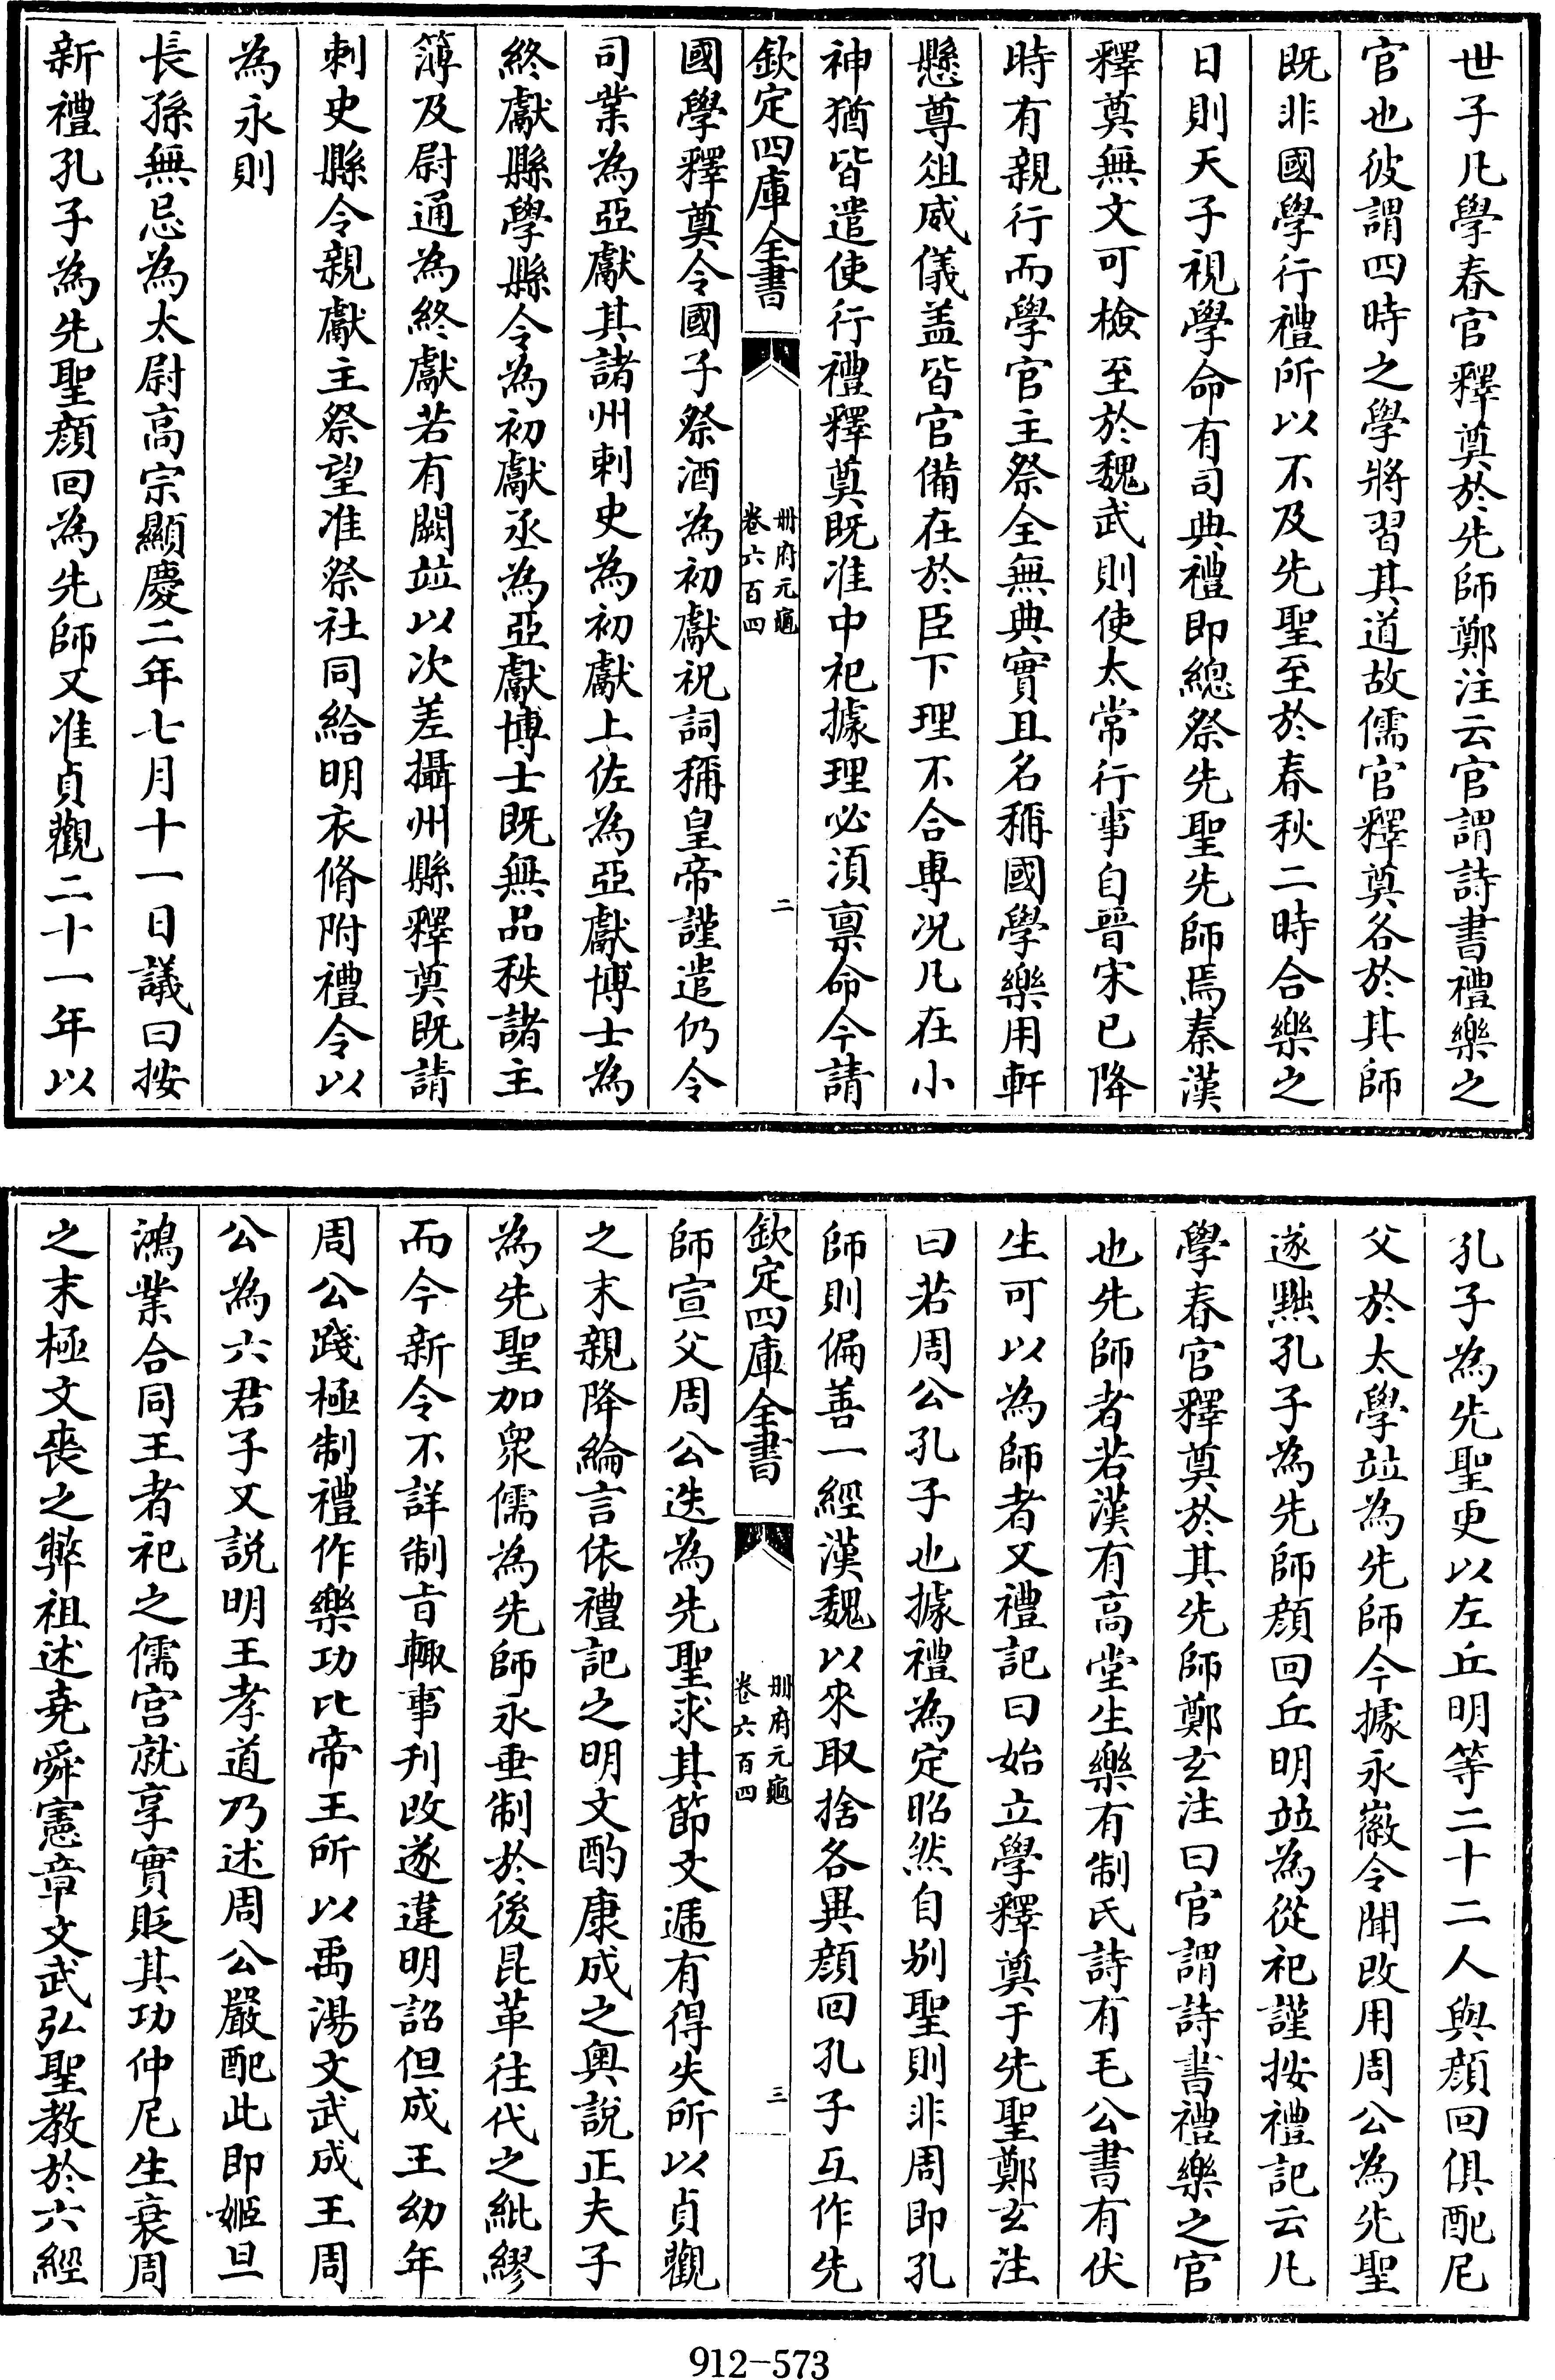 世子凡學春官釋奠於先師鄭注云官謂詩書禮樂之
官也彼謂四時之學將習其道故儒官釋奠各於其師
既非國學行禮所以不及先聖至於春秋二時合樂之
日則天子視學命有司典禮即總祭先聖先師焉秦漢
釋奠無文可檢至於魏武則使太常行事自晉宋已降
時有親行而學官主祭全無典實且名稱國學樂用軒
懸尊俎威儀盖皆官備在於臣下理不合專况凡在小
神猶皆遣使行禮釋奠既准中祀據理必須禀命今請
欽定四庫全書
冊府元龜
卷六百四
二
國學釋奠令國子祭酒為初獻祝詞稱皇帝謹遣仍令
司業為亞獻其諸州刺史為初獻上佐為亞獻博士為
終獻縣學縣令為初獻丞為亞獻博士既無品秩諸主
簿及尉通為終獻若有闕並以次差攝州縣釋奠既請
刺史縣令親獻主祭望准祭社同給明衣脩附禮令以
為永則
長孫無忌為太尉高宗顯慶二年七月十一日議曰按
新禮孔子為先聖顔回為先師又准貞觀二十一年以
孔子為先聖更以左丘明等二十二人與顔回俱配尼
父於太學並為先師今據永徽令聞改用周公為先聖
遂黜孔子為先師顔回丘明並為從祀謹按禮記云凡
學春官釋奠於其先師鄭玄注曰官謂詩書禮樂之官
也先師者若漢有高堂生樂有制氏詩有毛公書有伏
生可以為師者又禮記曰始立學釋奠于先聖鄭玄注
曰若周公孔子也據禮為定昭然自别聖則非周即孔
師則偏善一經漢魏以來取捨各異顔回孔子互作先
欽定四庫全書
冊府元龜
卷六百四
三
師宣父周公迭為先聖求其節文遞有得失所以貞觀
之末親降綸言依禮記之明文酌康成之奥説正夫子
為先聖加衆儒為先師永垂制於後昆革往代之紕繆
而今新令不詳制旨輙事刊改遂違明詔但成王幼年
周公踐極制禮作樂功比帝王所以禹湯文武成王周
公為六君子又説明王孝道乃述周公嚴配此即姬旦
鴻業合同王者祀之儒宫就享實貶其功仲尼生衰周
之末極文喪之弊祖述堯舜憲章文武弘聖教於六經
912-573